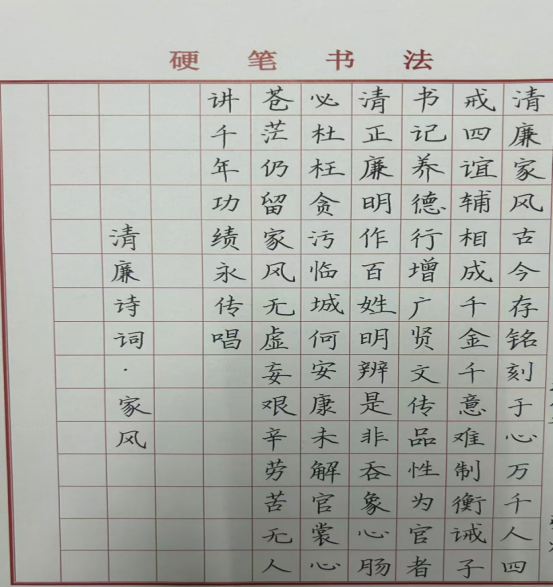 硬笔书法
清廉家风古今存铭刻于心万千人四
戒四谊辅相成千金千意难制衡诫子
书记养德行增广贤文传品性为官者
清正廉明作百姓明辨是非吞象心肠
必杜枉贪污临城何安康未解官裳心
苍茫仍留家风无虚妄艰辛劳苦无人
讲千年功绩永传唱
清廉诗词·家风